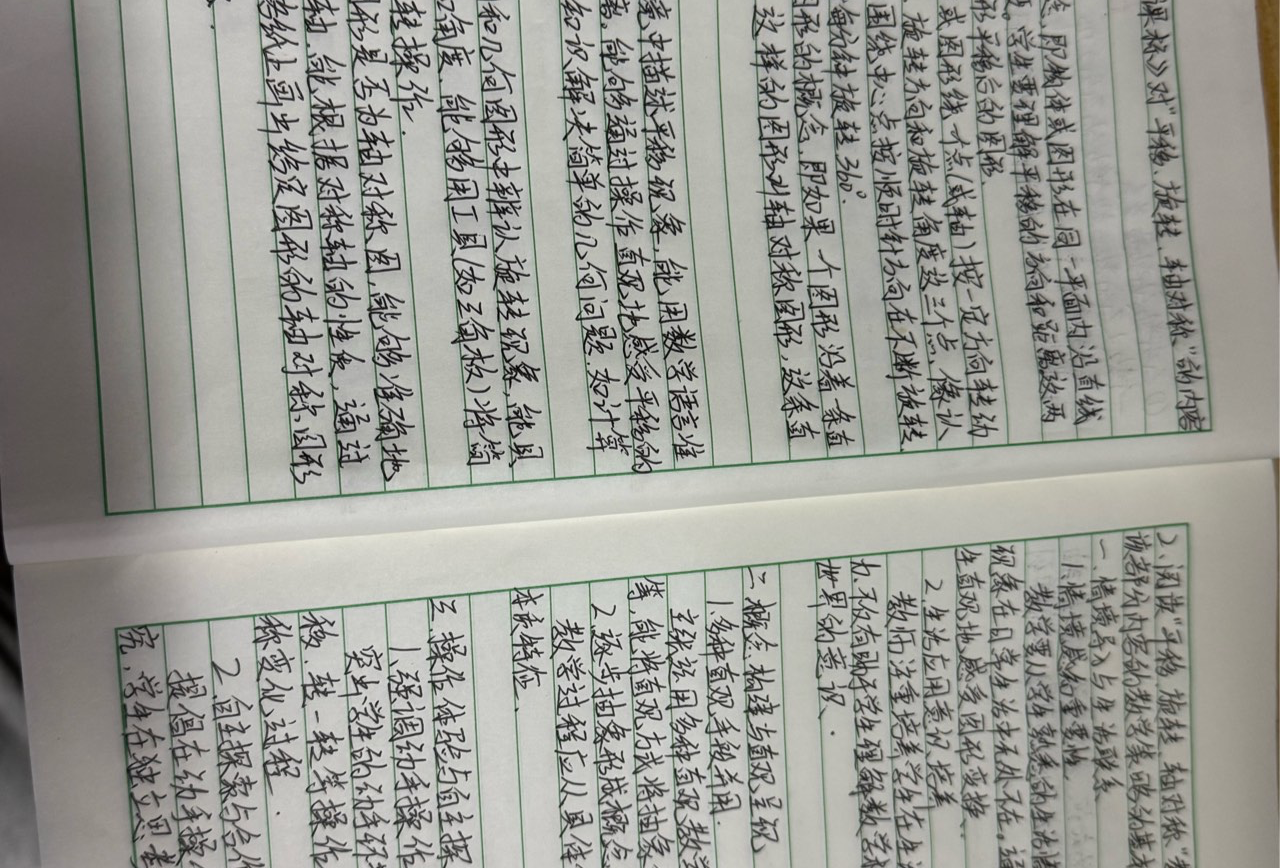 课标》对“平移、旋转、轴对称”的内容
念,即物体或图形在同一平面内沿直线
学生要理解平移的方向和距离这两
形平移后的图形.
或图形绕一个点(或轴)按一定方向转动
旋转方向和旋转角度这三个点,像认
围绕中心点按顺时针方向在不断旋转
每分钟旋转360°.
图形的概念,即如果一个图形沿着一条直
这样的图形叫轴对称图形,这条直
境中描述平移现象,能用数学语言准
离,能够通过操作直观地感受平移的
知识解决简单的几何问题,如计算
和几何图形中辨认旋转现象,能具
角度,能够用工具(如三角板)将简
转操作.
形是否为轴对称图,能够准确地
轴,能根据对称轴的性质,通过
格纸上画出给定图形的轴对称图形
2、阅读“平移、旋转、轴对称”
该部分内容的教学策略为基
一、情境导入与生活联系
1.情境感知重要性
教学要从学生熟悉的生活
现象在日常生活中无处不在。通
生直观地感受图形变换
2.生活应用意识培养
教师注重培养学生在生
力,不仅有助于学生理解数学
世界的意识.
二、概念构建与直观呈现
1.多种直观手段并用.
主张运用多种直观教
等,能将直观方式将抽象
2.逐步抽象形成概念
教学过程应从具体
本质特征.
三、操作体验与自主探
1.强调动手操作
突出学生的动手
移、转一转等操作
称变化过程.
2.自主探索与合作
提倡在动手操
究,学生在独立思考